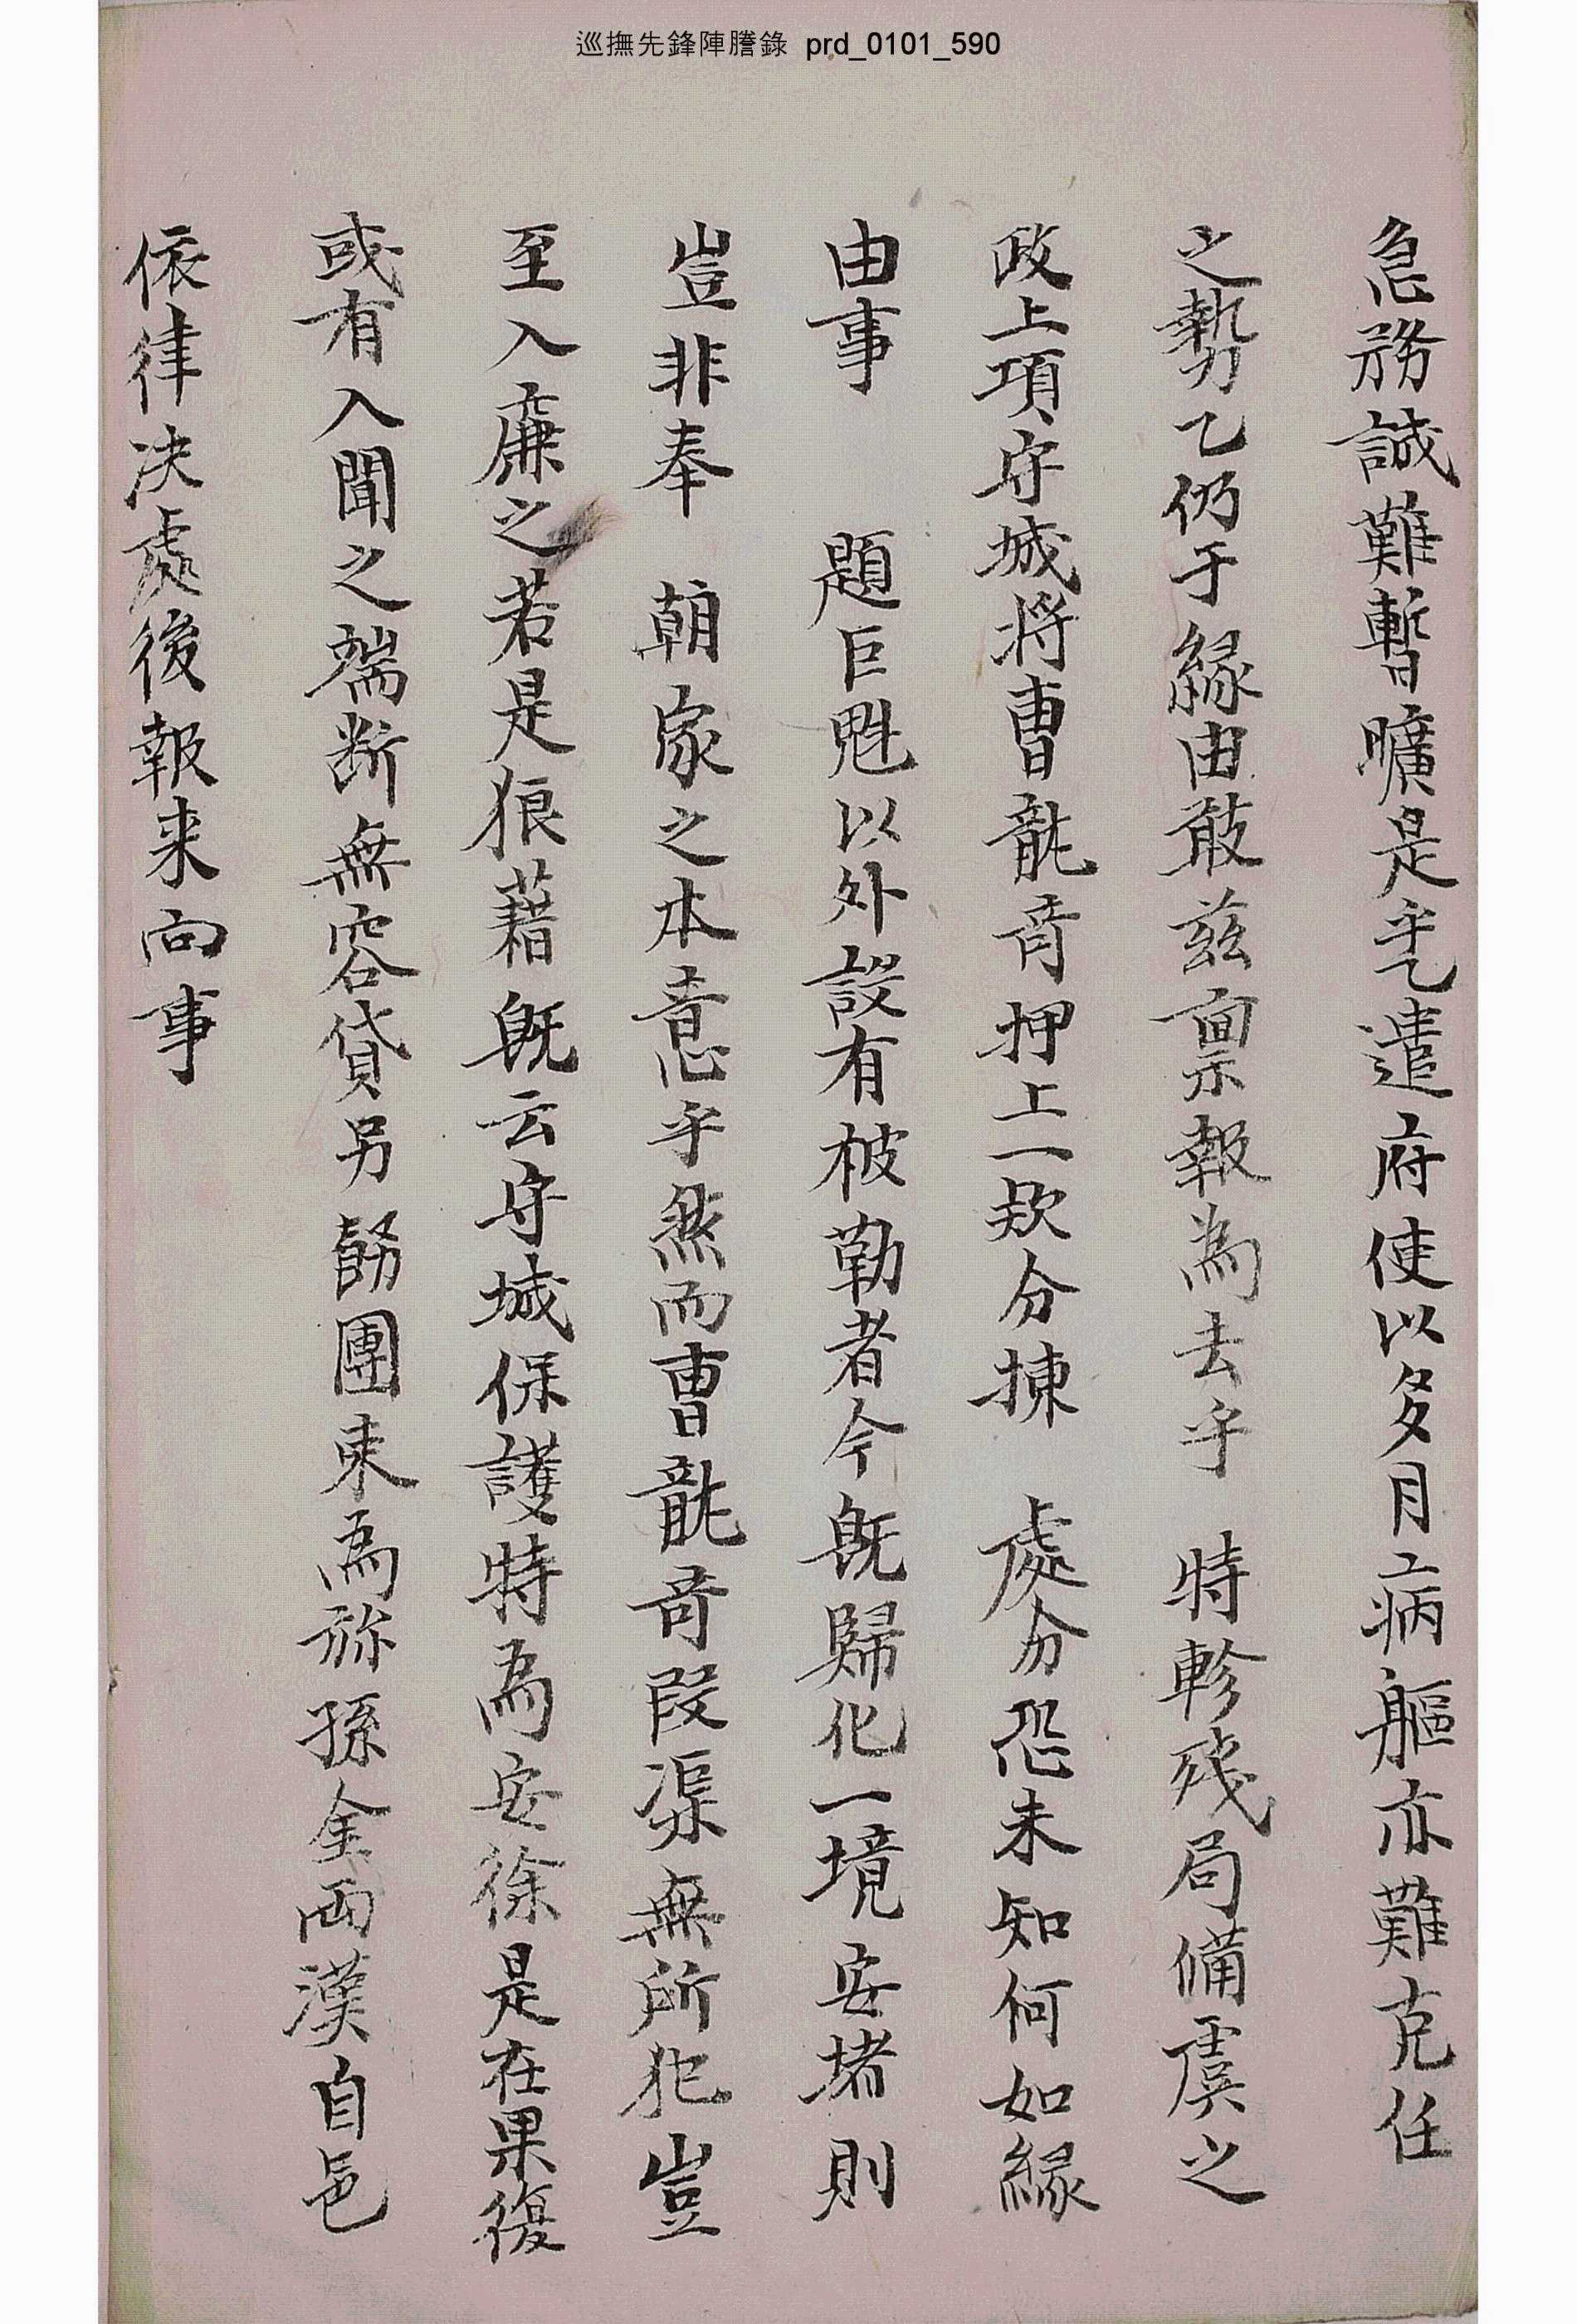 巡撫先鋒陣謄錄 prd_0101_590
急務誠難暫曠是乎乙遣府使以多月病軀亦難克任
之勢乙仍于緣由敢玆稟報為去乎 特軫殘局備虞之
政上項守城將曺龍 押上一款分揀 處分恐未知何如緣
由事 題巨魁以外設有被勒者今旣歸化一境安堵則
豈非奉 朝家之本意乎然而曺龍 段渠無所犯豈
至入廉之若是狼藉旣云守城保護特為安徐是在果復
或有入聞之端断無容貸另飭團束為旀孫金両漢自邑
依律决處後報来向事